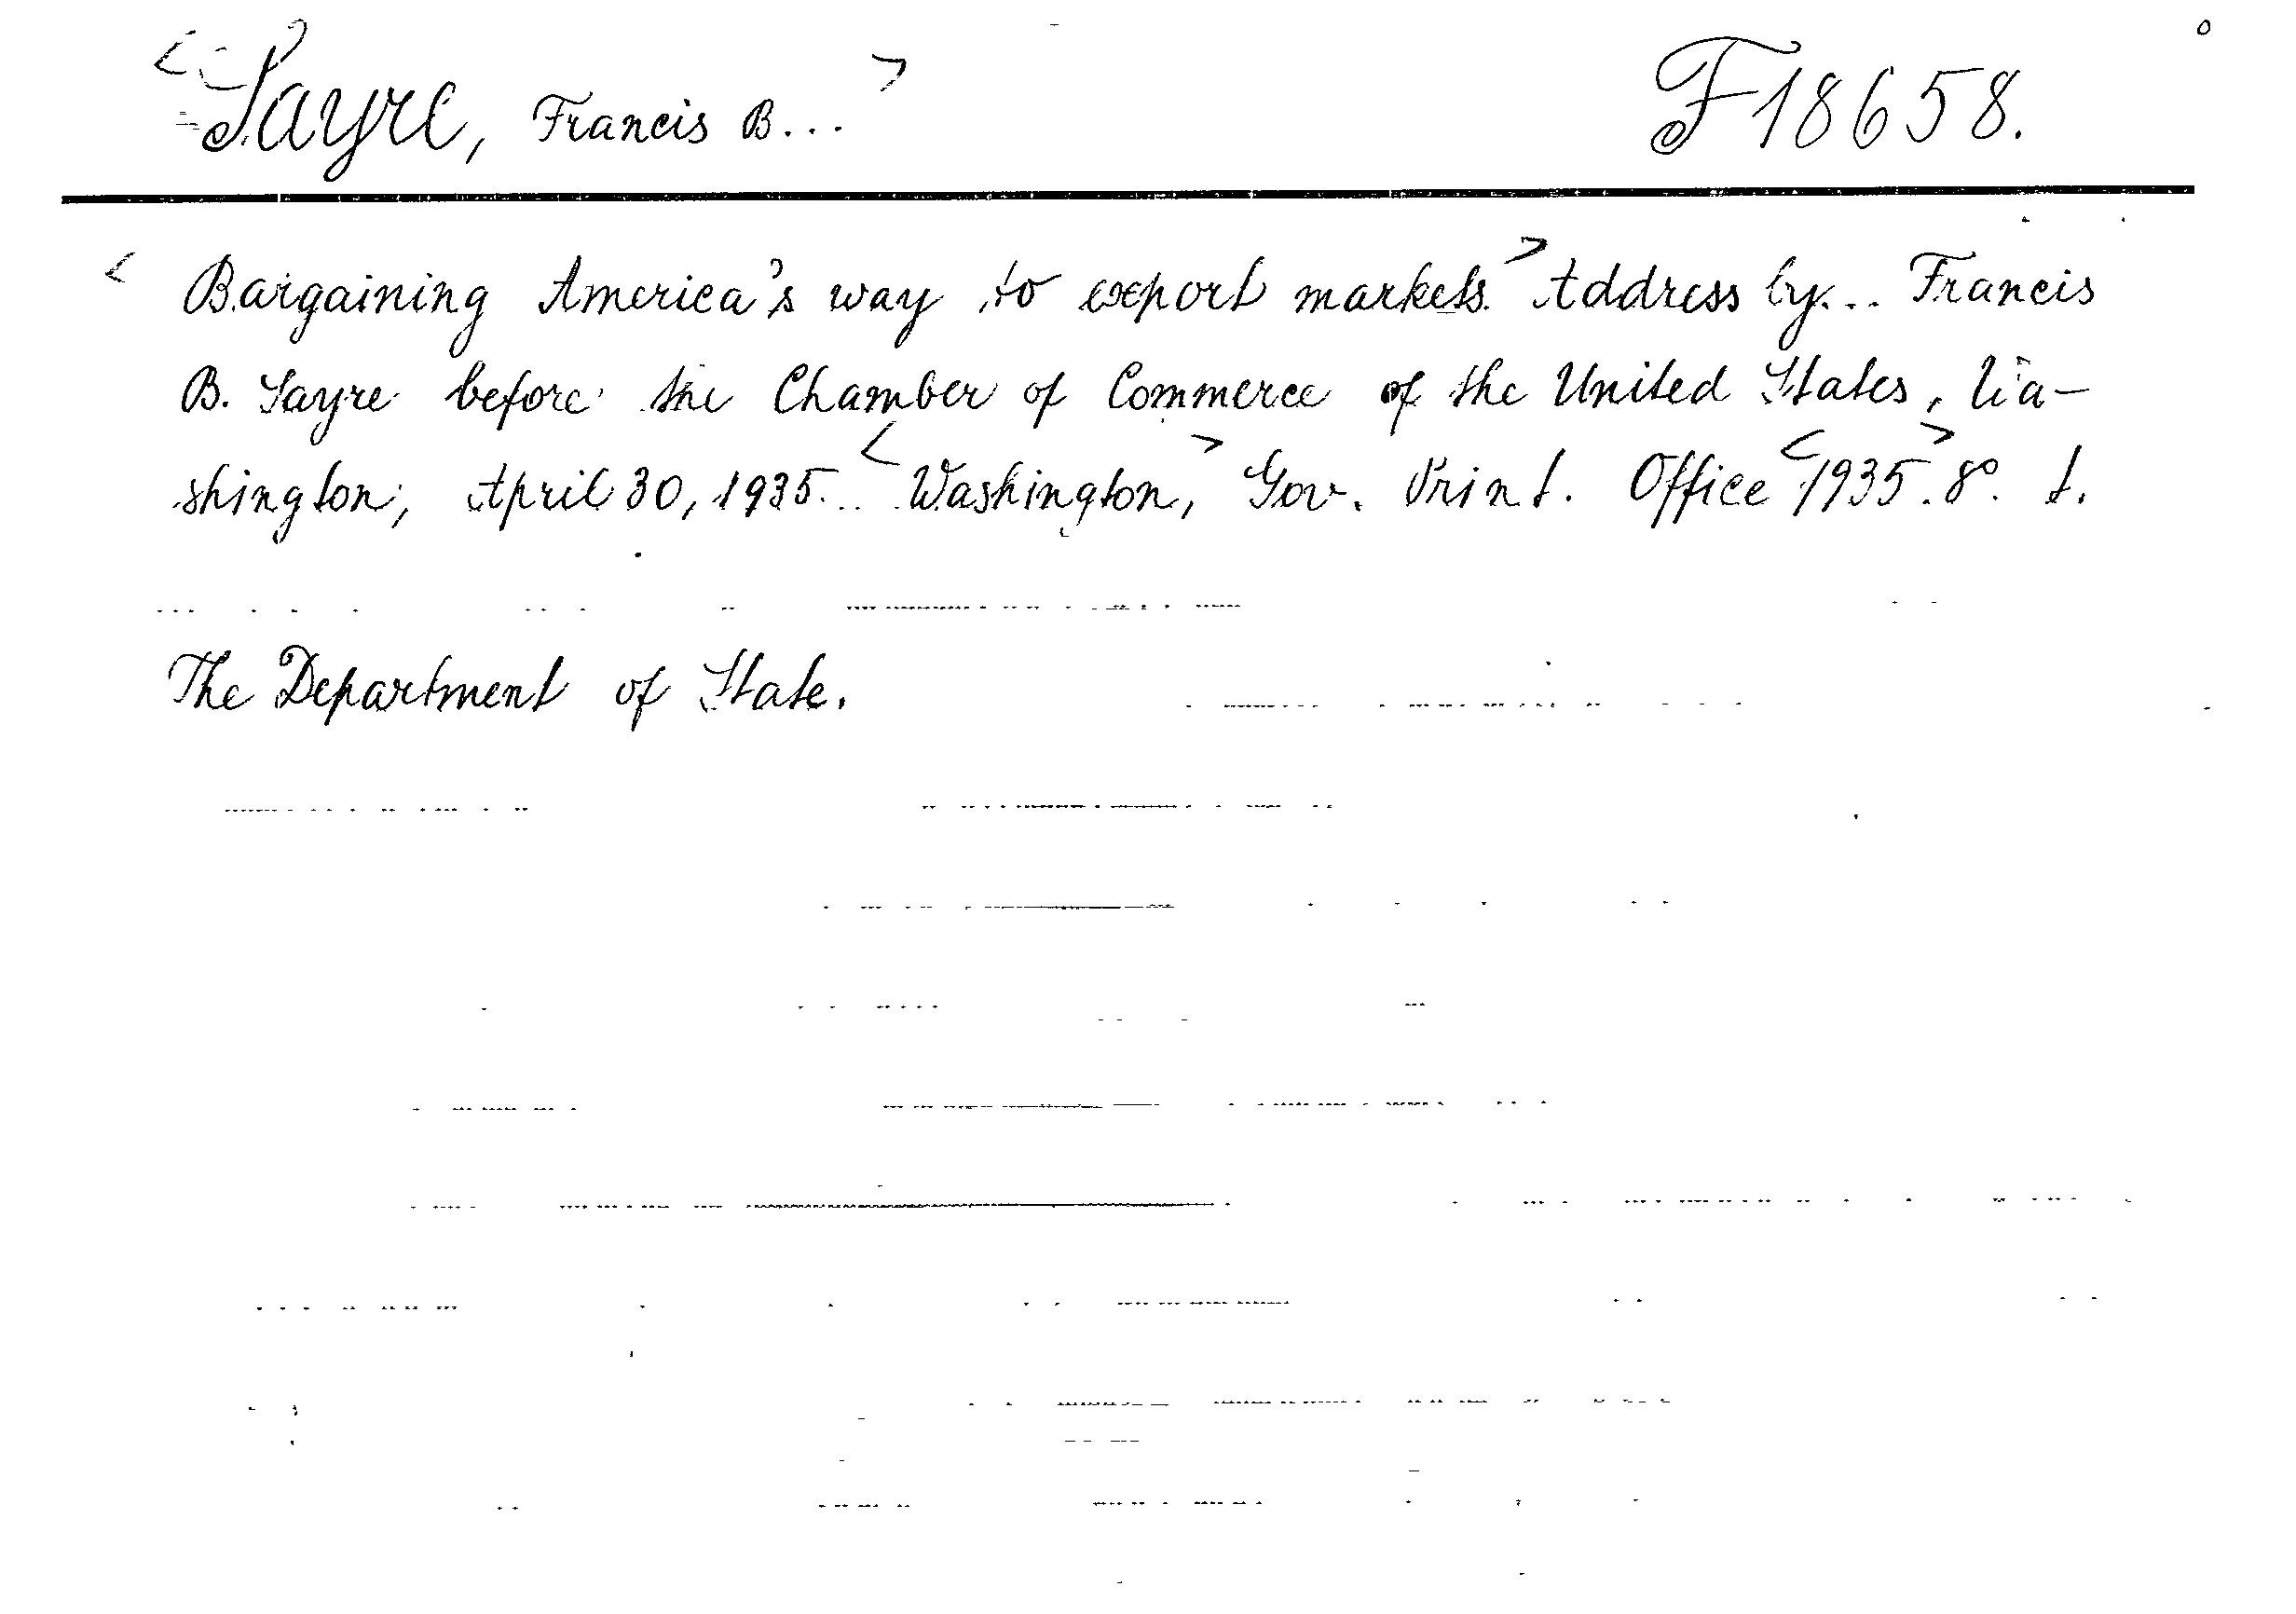 <Sayre, Francis B...> F18658.
<Bargaining America's way to export markets.> Address by... Francis
B. Sayre before the Chamber of Commerce of the United States, Wa-
shington, April 30, 1935... <Washington,> Gov. Print. Office <1935>. 8°. t.
The Department of State.